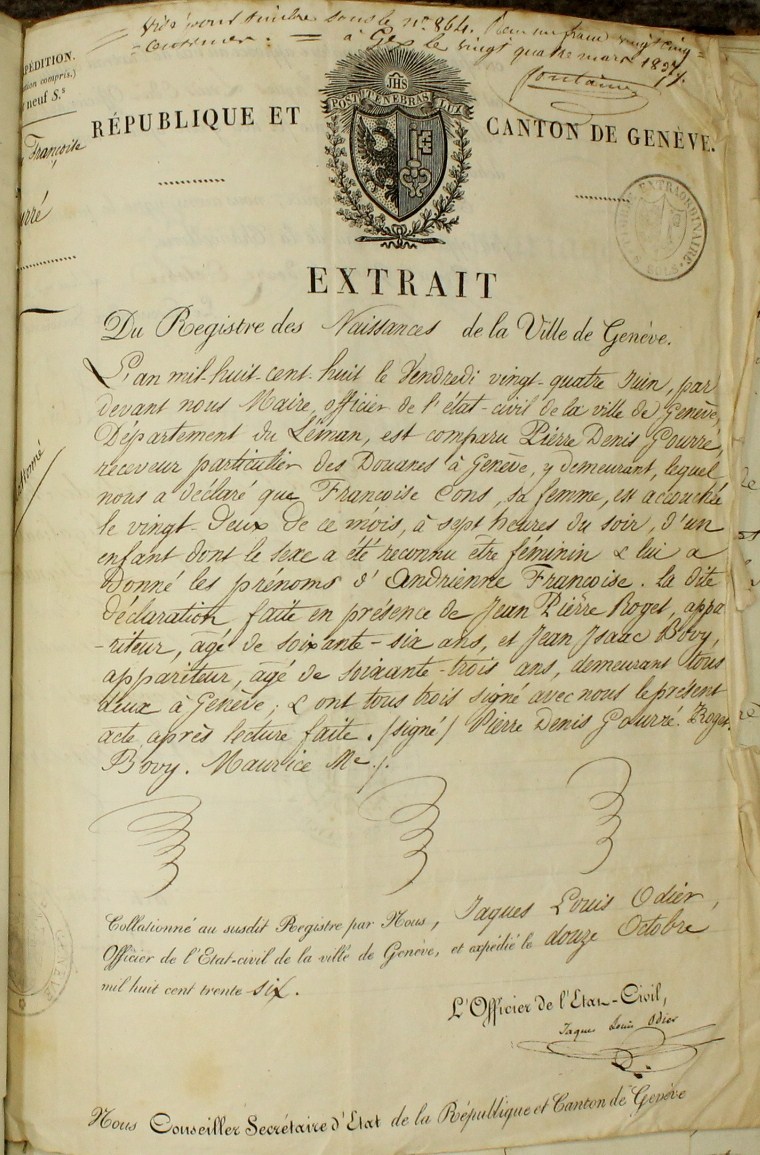 Visé pour timbre sous le n° 864. Reçu un franc vingt cinq
centimes. = à Gex le vingt quatre mars 1837.
Fontaine
PÉDITION.
tion compris.)
neuf S.s
Françoise
rré
JHS
POST TENEBRAS LUX
RÉPUBLIQUE ET CANTON DE GENÈVE.
TIMBRE EXTRAORDINAIRE
SOLS
EXTRAIT
Du Registre des Naissances de la Ville de Genève.
L'an mil-huit-cent-huit le Vendredi vingt-quatre Juin, par
devant nous Maire, officier de l'état-civil de la ville de Genève,
Département du Léman, est comparu Pierre Denis Gourré,
receveur particulier des Douanes à Genève, y demeurant, lequel
nous a déclaré que Francoise Cons, sa femme, est accouchée
le vingt-Deux de ce mois, à sept heures du soir, d'un
enfant dont le sexe a été reconnu être féminin & lui a
donné les prénoms d'Andrienne Françoise. La dite
déclaration faite en présence de Jean Pierre Roget, appa
-riteur, âgé de soixante-six ans, et Jean Isaac Bovy,
appariteur, âgé de soixante-trois ans, demeurant tous
deux à Genève; & ont tous trois signé avec nous le présent
acte après lecture faite. /signé/ Pierre Denis Gourré. Roget.
Bovy. Maurice Me /.
Collationné au susdit Registre par Nous, Jaques Louis Odier,
Officier de l'Etat-civil de la ville de Genève, et expédié le douze Octobre
mil huit cent trente six.
L'Officier de l'Etat-Civil,
Jaques Louis Odier
Nous Conseiller Secrétaire d'Etat de la République et Canton de Genève